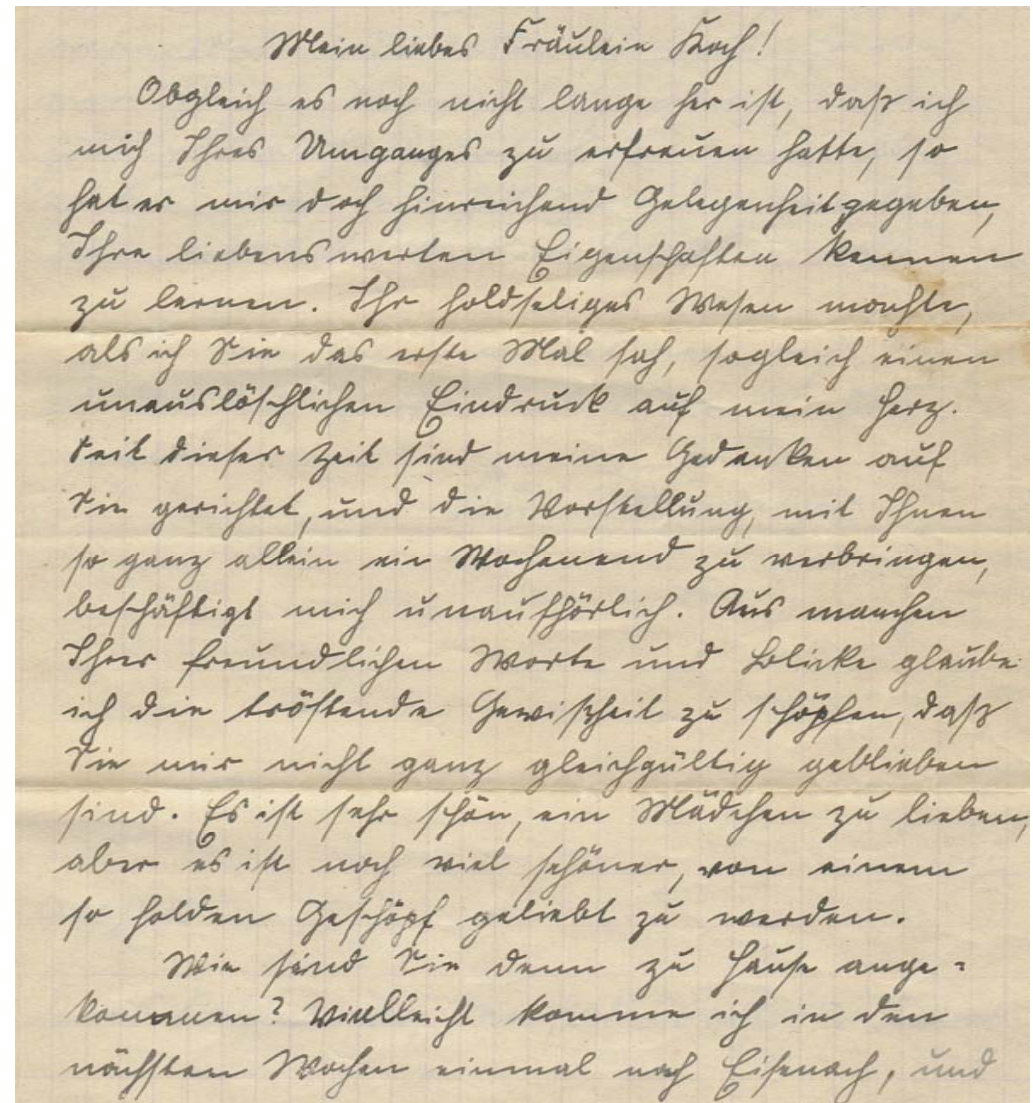 Mein liebes Fräulein Koch!
Obgleich es noch nicht lange her ist, daß ich
mich Ihres Umganges zu erfreuen hatte, so
hat er mir doch hinreichend Gelegenheit gegeben,
Ihre liebenswerten Eigenschaften kennen
zu lernen. Ihr holdseliges Wesen machte,
als ich Sie das erste Mal sah, sogleich einen
unauslöschlichen Eindruck auf mein Herz.
Seit dieser Zeit sind meine Gedanken auf
Sie gerichtet, und die Vorstellung, mit Ihnen
so ganz allein ein Wochenend zu verbringen,
beschäftigt mich unaufhörlich. Aus manchen
Ihrer freundlichen Worte und Blicke glaube
ich die tröstende Gewißheit zu schöpfen, daß
Sie mir nicht ganz gleichgültig geblieben
sind. Es ist sehr schön, ein Mädchen zu lieben,
aber es ist noch viel schöner, von einem
so holden Geschöpf geliebt zu werden.
Wie sind Sie denn zu Hause ange=
kommen? Vielleicht komme ich in den
nächsten Wochen einmal nach Eisenach, und